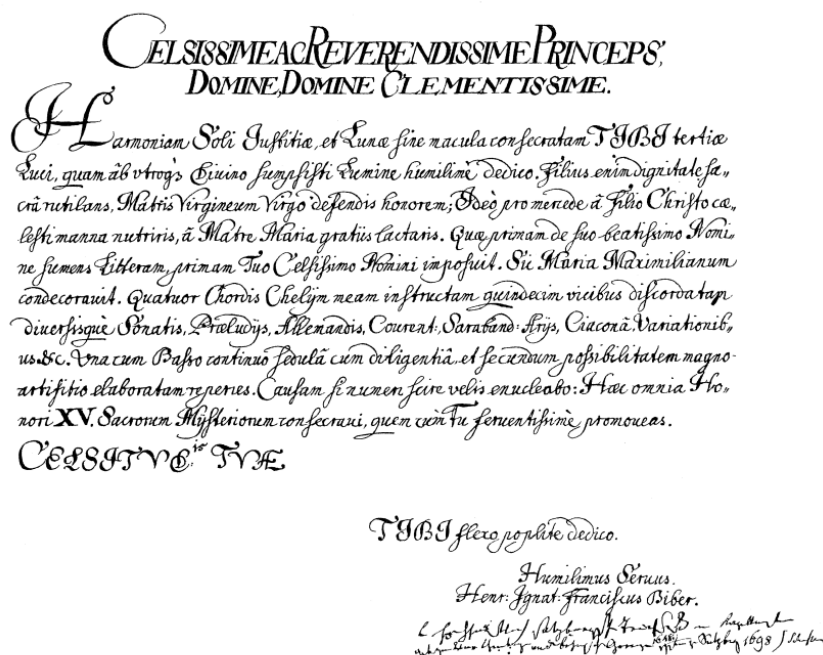 CELSISSIME AC REVERENDISSIME PRINCEPS,
DOMINE, DOMINE CLEMENTISSIME.
Harmoniam Soli Justitiæ, et Lunæ sine macula consecratam TIBI tertiæ
Luci, quam ab vtroq3 Divino sumpsisti Lumine humilimè dedico. Filius enim dignitate sa-
crâ rutilans, Matris Virgineum Virgo defendis honorem; Ideò pro mercede â Filio Christo cæ-
lesti manna nutriris, â Matre Maria gratiis lactaris. Quæ primam de suo beatissimo Nomi-
ne sumens Litteram, primam Tuo Celsissimo Nomini imposuit. Sic Maria Maximilianum
condecorauit. Quatuor Chordis Chelijm meam instructam quindecim vicibus discordatam
diuersisquè Sonatis, Præludijs, Allemandis, Courent: Saraband: Arijs, Ciaconâ, Variationib-
us &c. Vna cum Basso continuo sedulâ cum diligentiâ, et secundum possibilitatem magno
artifitio elaboratam reperies. Causam si numeri scire velis enucleabo: Hæc omnia Ho-
nori XV. Sacrorum Mysteriorum consecraui, quem cùm Tu feruentissimè promoueas.
CELSITVD:is TVÆ
TIBI flexo poplite dedico.
Humilimus Seruus.
Henr: Ignat: Franciscus Biber.
1698